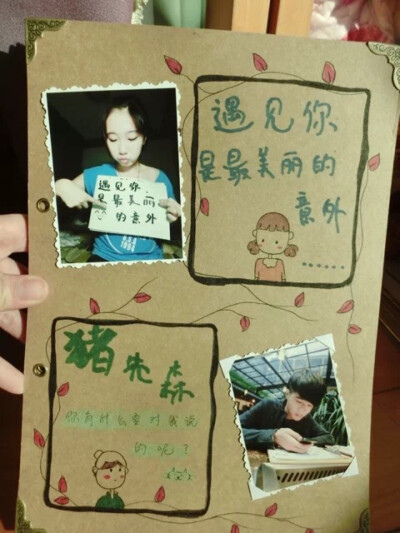 遇见你
是最美丽
的意外
遇见你
是最美丽的
意外
......
猪先森
你有什么要对我说
的呢？